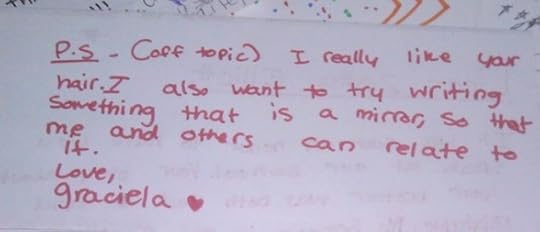 P.S - (off topic) I really like your
hair. I also want to try writing
something that is a mirror, so that
me and others can relate to
it.
Love,
graciela ♥